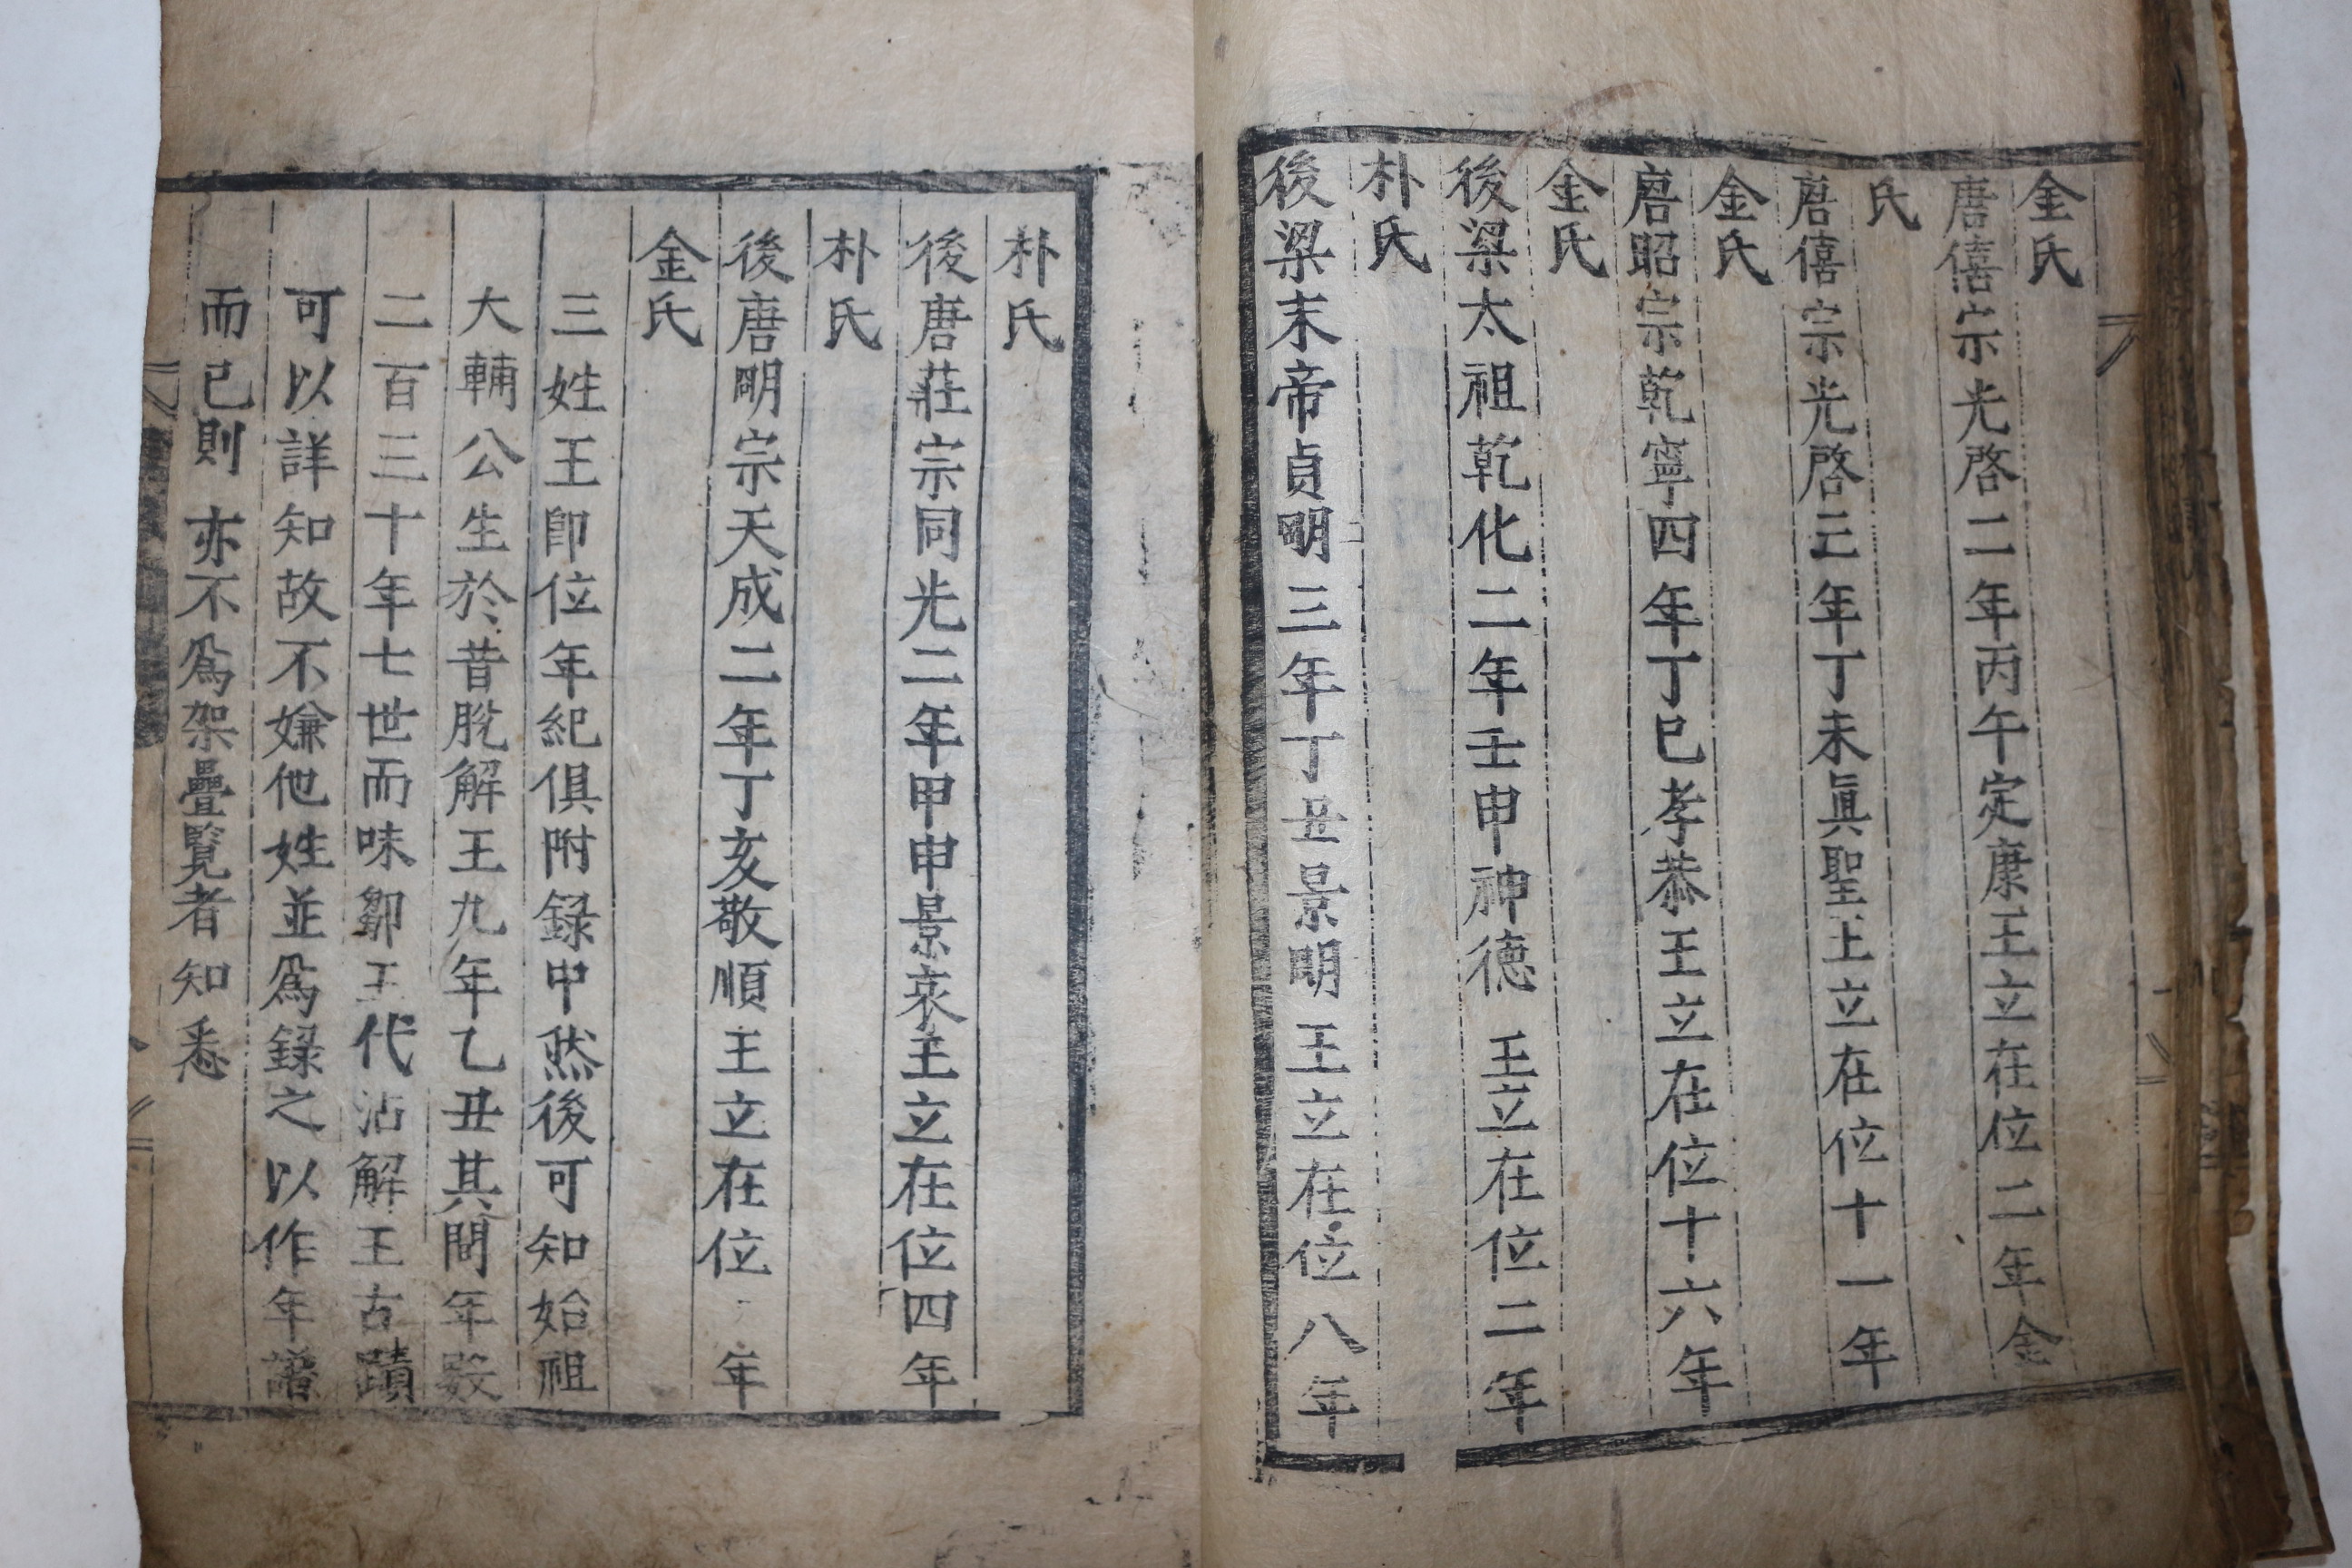 金氏
唐僖宗光啓二年丙午定康王立在位二年金
氏
唐僖宗光啓三年丁未眞聖王立在位十一年
金氏
唐昭宗乾寧四年丁巳孝恭王立在位十六年
金氏
後梁太祖乾化二年壬申神德王立在位二年
朴氏
後梁末帝貞明三年丁丑景明王立在位八年
朴氏
後唐莊宗同光二年甲申景哀王立在位四年
朴氏
後唐明宗天成二年丁亥敬順王立在位年
金氏
三姓王卽位年紀俱附録中然後可知始祖
大輔公生於昔脫解王九年乙丑其間年數
二百三十年七世而味鄒王代沾解王古蹟
可以詳知故不嫌他姓並爲録之以作年譜
而已則亦不爲架疊覽者知悉